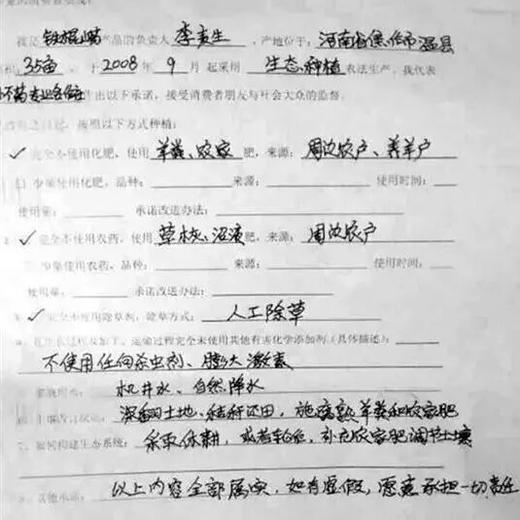 我是 铁棍山药 产品的负责人 李 生，产地位于：河南省焦作市温县
35亩，于 2008年 9月起采用 生态种植 农法生产，我代表
作出以下承诺，接受消费者朋友与社会大众的监督。
按照以下方式种植：
✓ 完全不使用化肥，使用 羊粪、农家 肥，来源：周边农户、养羊户
少量使用化肥，品种： 来源： 使用时间：
使用量： 承诺改进办法：
2 ✓ 完全不使用农药，使用 草木灰、沼液 肥，来源：周边农户
少量使用农药，品种： 来源： 使用时间：
使用量： 承诺改进办法：
3 ✓ 完全不使用除草剂，除草方式： 人工除草
运输过程完全未使用其他有害化学添加剂（具体描述）：
不使用任何杀虫剂、膨大激素
灌溉用水： 机井水、自然降水
土壤改良 ： 深翻土地、秸秆还田，施腐熟羊粪和农家肥
7 如何构建生态系统： 采取休耕，或者轮作，补充农家肥调节土壤
其他承诺： 以上内容全部属实，如有虚假，愿意承担一切责任